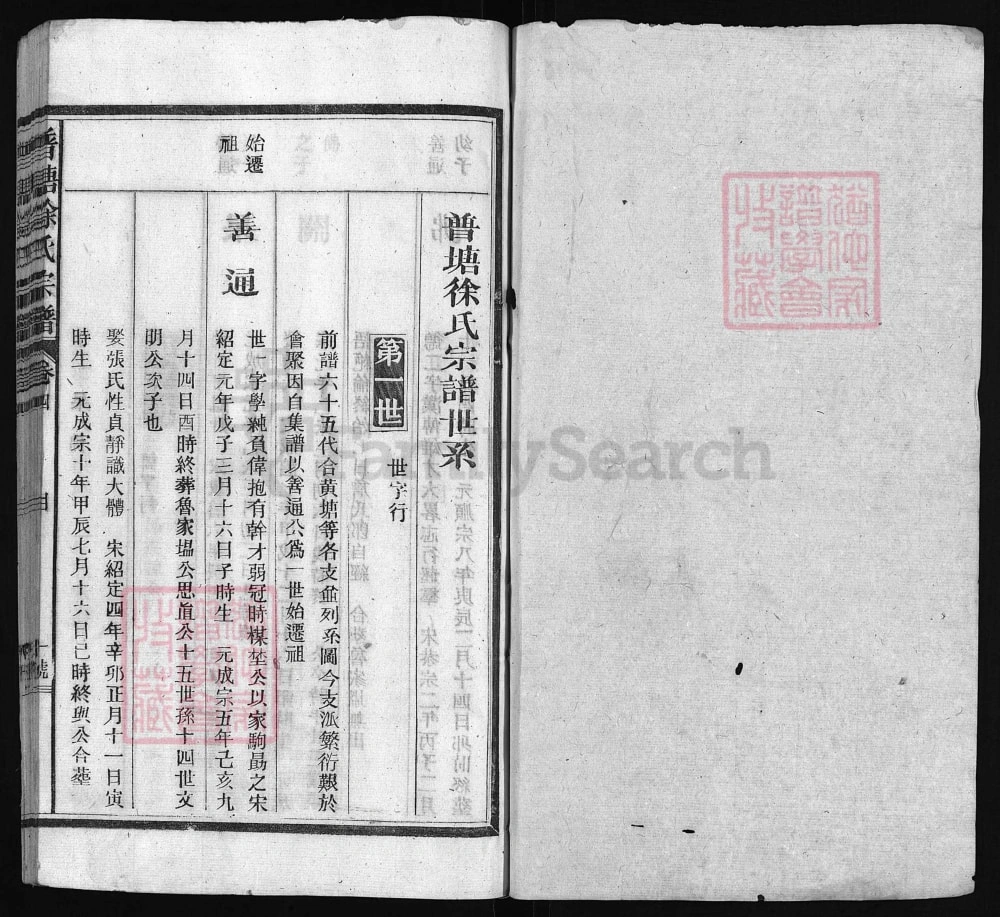 普塘徐氏宗譜世系
第一世
世字行
前譜六十五代合黃塘等各支僉列系圖今支派繁衍艱於
會聚因自集譜以善通公為一世始遷祖
始遷
祖
善通
世一字學純負偉抱有幹才弱冠時楳埜公以家駒勗之宋
紹定元年戊子三月十六日子時生　元成宗五年己亥九
月十四日酉時終葬魯家塭公思眞公十五世孫十四世文
明公次子也
娶張氏性貞靜識大體　宋紹定四年辛卯正月十一日寅
時生　元成宗十年甲辰七月十六日巳時終與公合葬
普塘徐氏宗譜
卷四
一號
猶他家
譜學會
收藏
FamilySearch